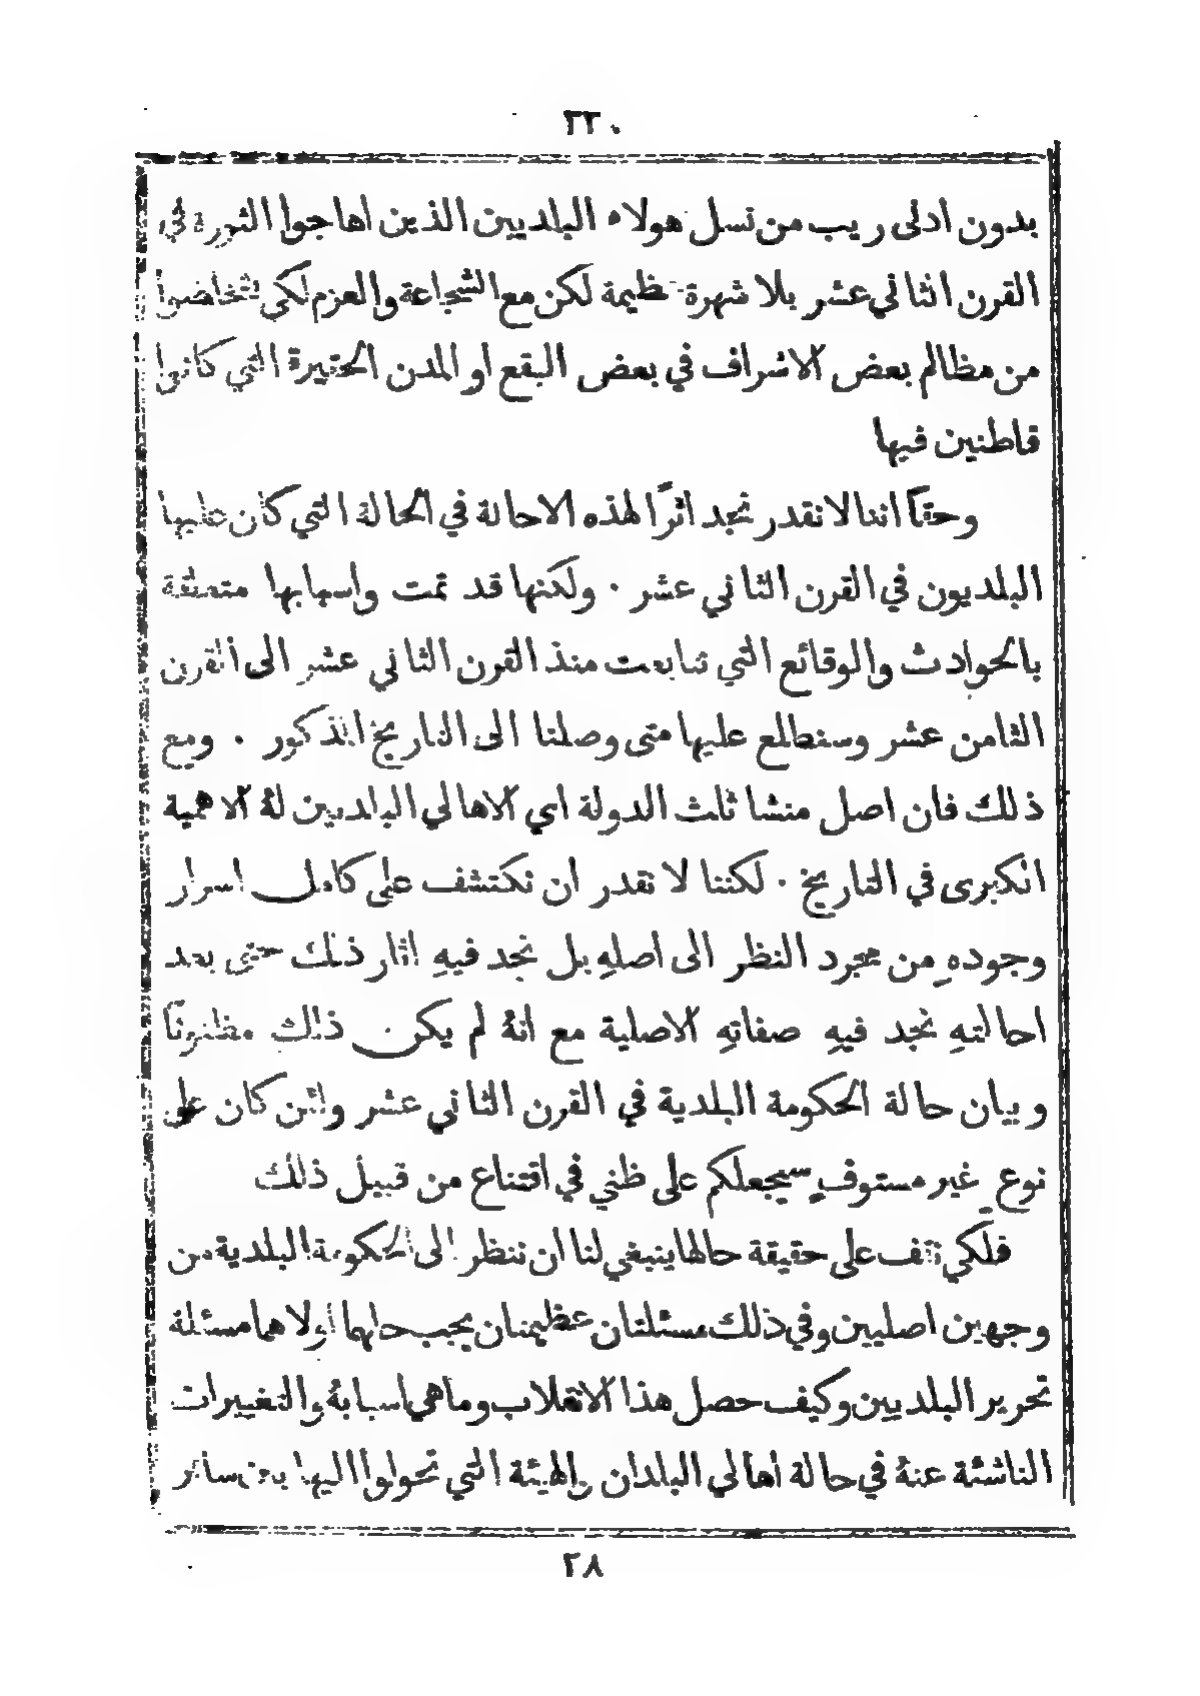 ٢٢٠
بدون ادنى ريب من نسل هولاء البلديين الذين اهاجوا الثورة في
القرن الثاني عشر بلا شهرة عظيمة لكن مع الشجاعة والعزم لكي يتخلصوا
من مظالم بعض الاشراف في بعض البقع او المدن الحقيرة التي كانوا
قاطنين فيها
وحقًا اننا لا نقدر نجد اثرًا لهذه الاحالة في الحالة التي كان عليها
البلديون في القرن الثاني عشر · ولكنها قد تمت واسبابها متعلقة
بالحوادث والوقائع التي تتابعت منذ القرن الثاني عشر الى القرن
الثامن عشر وسنطلع عليها متى وصلنا الى التاريخ المذكور · ومع
ذلك فان اصل منشا ثلث الدولة اي الاهالي البلديين لهُ الاهمية
الكبرى في التاريخ · لكننا لا نقدر ان نكتشف على كامل اسرار
وجودهِ من مجرد النظر الى اصلهِ بل نجد فيهِ اثار ذلك حتى بعد
احالتهِ نجد فيهِ صفاتهِ الاصلية مع انهُ لم يكن ذلك مظنونًا
وبيان حالة الحكومة البلدية في القرن الثاني عشر ولئن كان على
نوع غير مستوفٍ سيجعلكم على ظني في اقتناع من قبيل ذلك
فلكي نقف على حقيقة حالها ينبغي لنا ان ننظر الى الحكومة البلدية من
وجهين اصليين وفي ذلك مسئلتان عظيمتان يجب حلهما اولاهما مسئلة
تحرير البلديين وكيف حصل هذا الانقلاب وما هي اسبابهُ والتغييرات
الناشئة عنهُ في حالة اهالي البلدان والهيئة التي تحولوا اليها بين سائر
٢٨